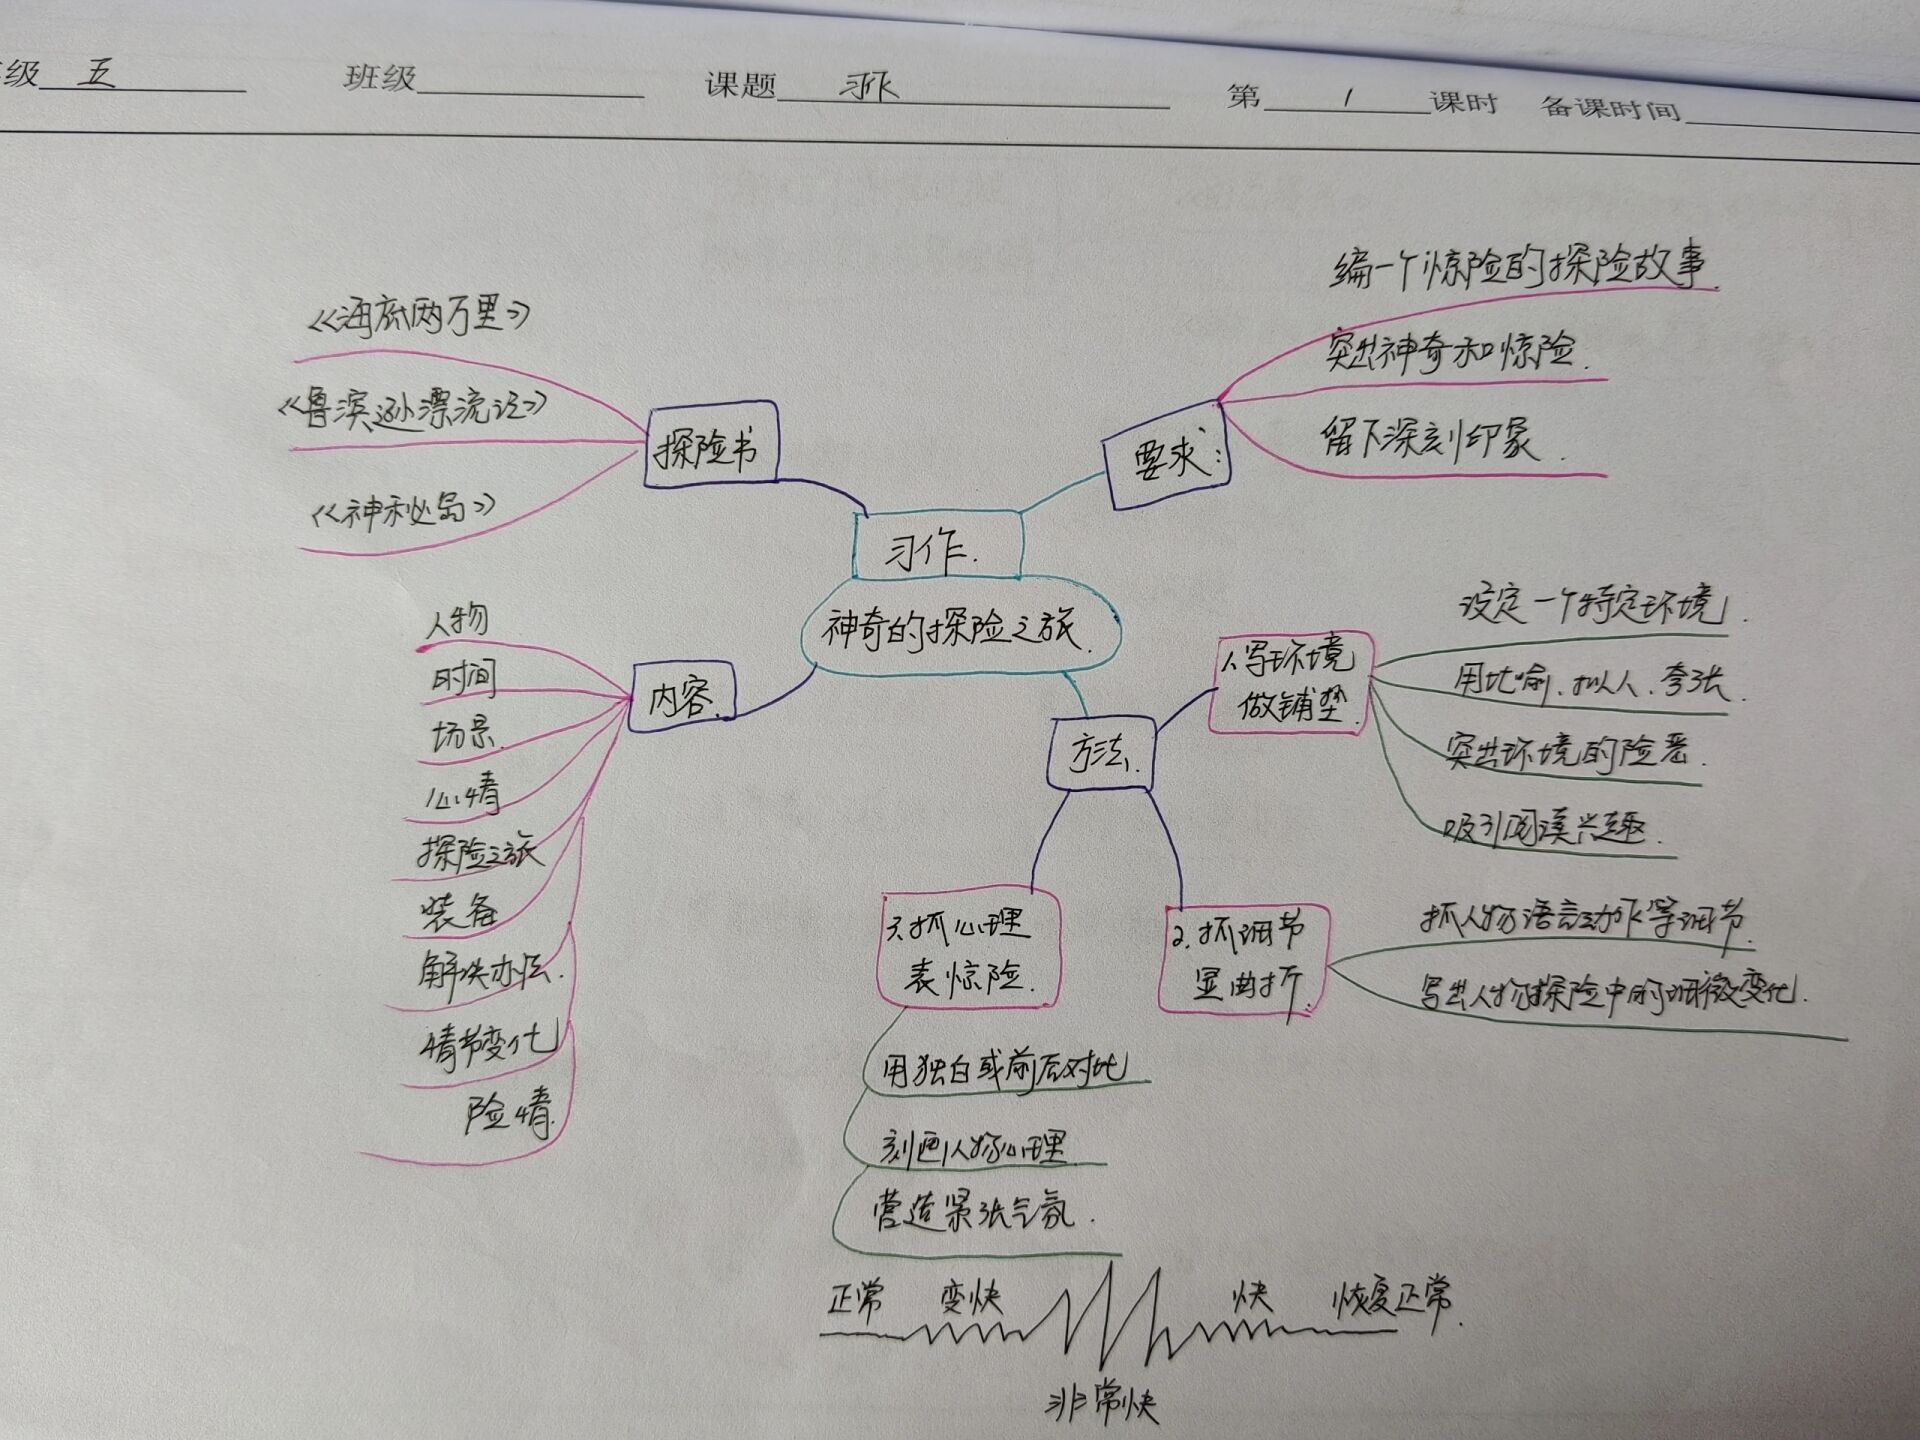 级 五 班级 课题 习作 第 1 课时 备课时间
习作.
神奇的探险之旅.
探险书
《海底两万里》
《鲁滨逊漂流记》
《神秘岛》
要求:
编一个惊险的探险故事.
突出神奇和惊险.
留下深刻印象.
内容.
人物
时间
场景.
心情
探险之旅
装备
解决办法.
情节变化
险情.
方法.
1.写环境
做铺垫.
设定一个特定环境.
用比喻、拟人、夸张.
突出环境的险恶.
吸引阅读兴趣.
2.抓细节
显曲折.
抓人物语言动作等细节.
写出人物探险中的细微变化.
3.抓心理
表惊险.
用独白或前后对比
刻画人物心理
营造紧张气氛.
正常 变快 快 恢复正常.
非常快